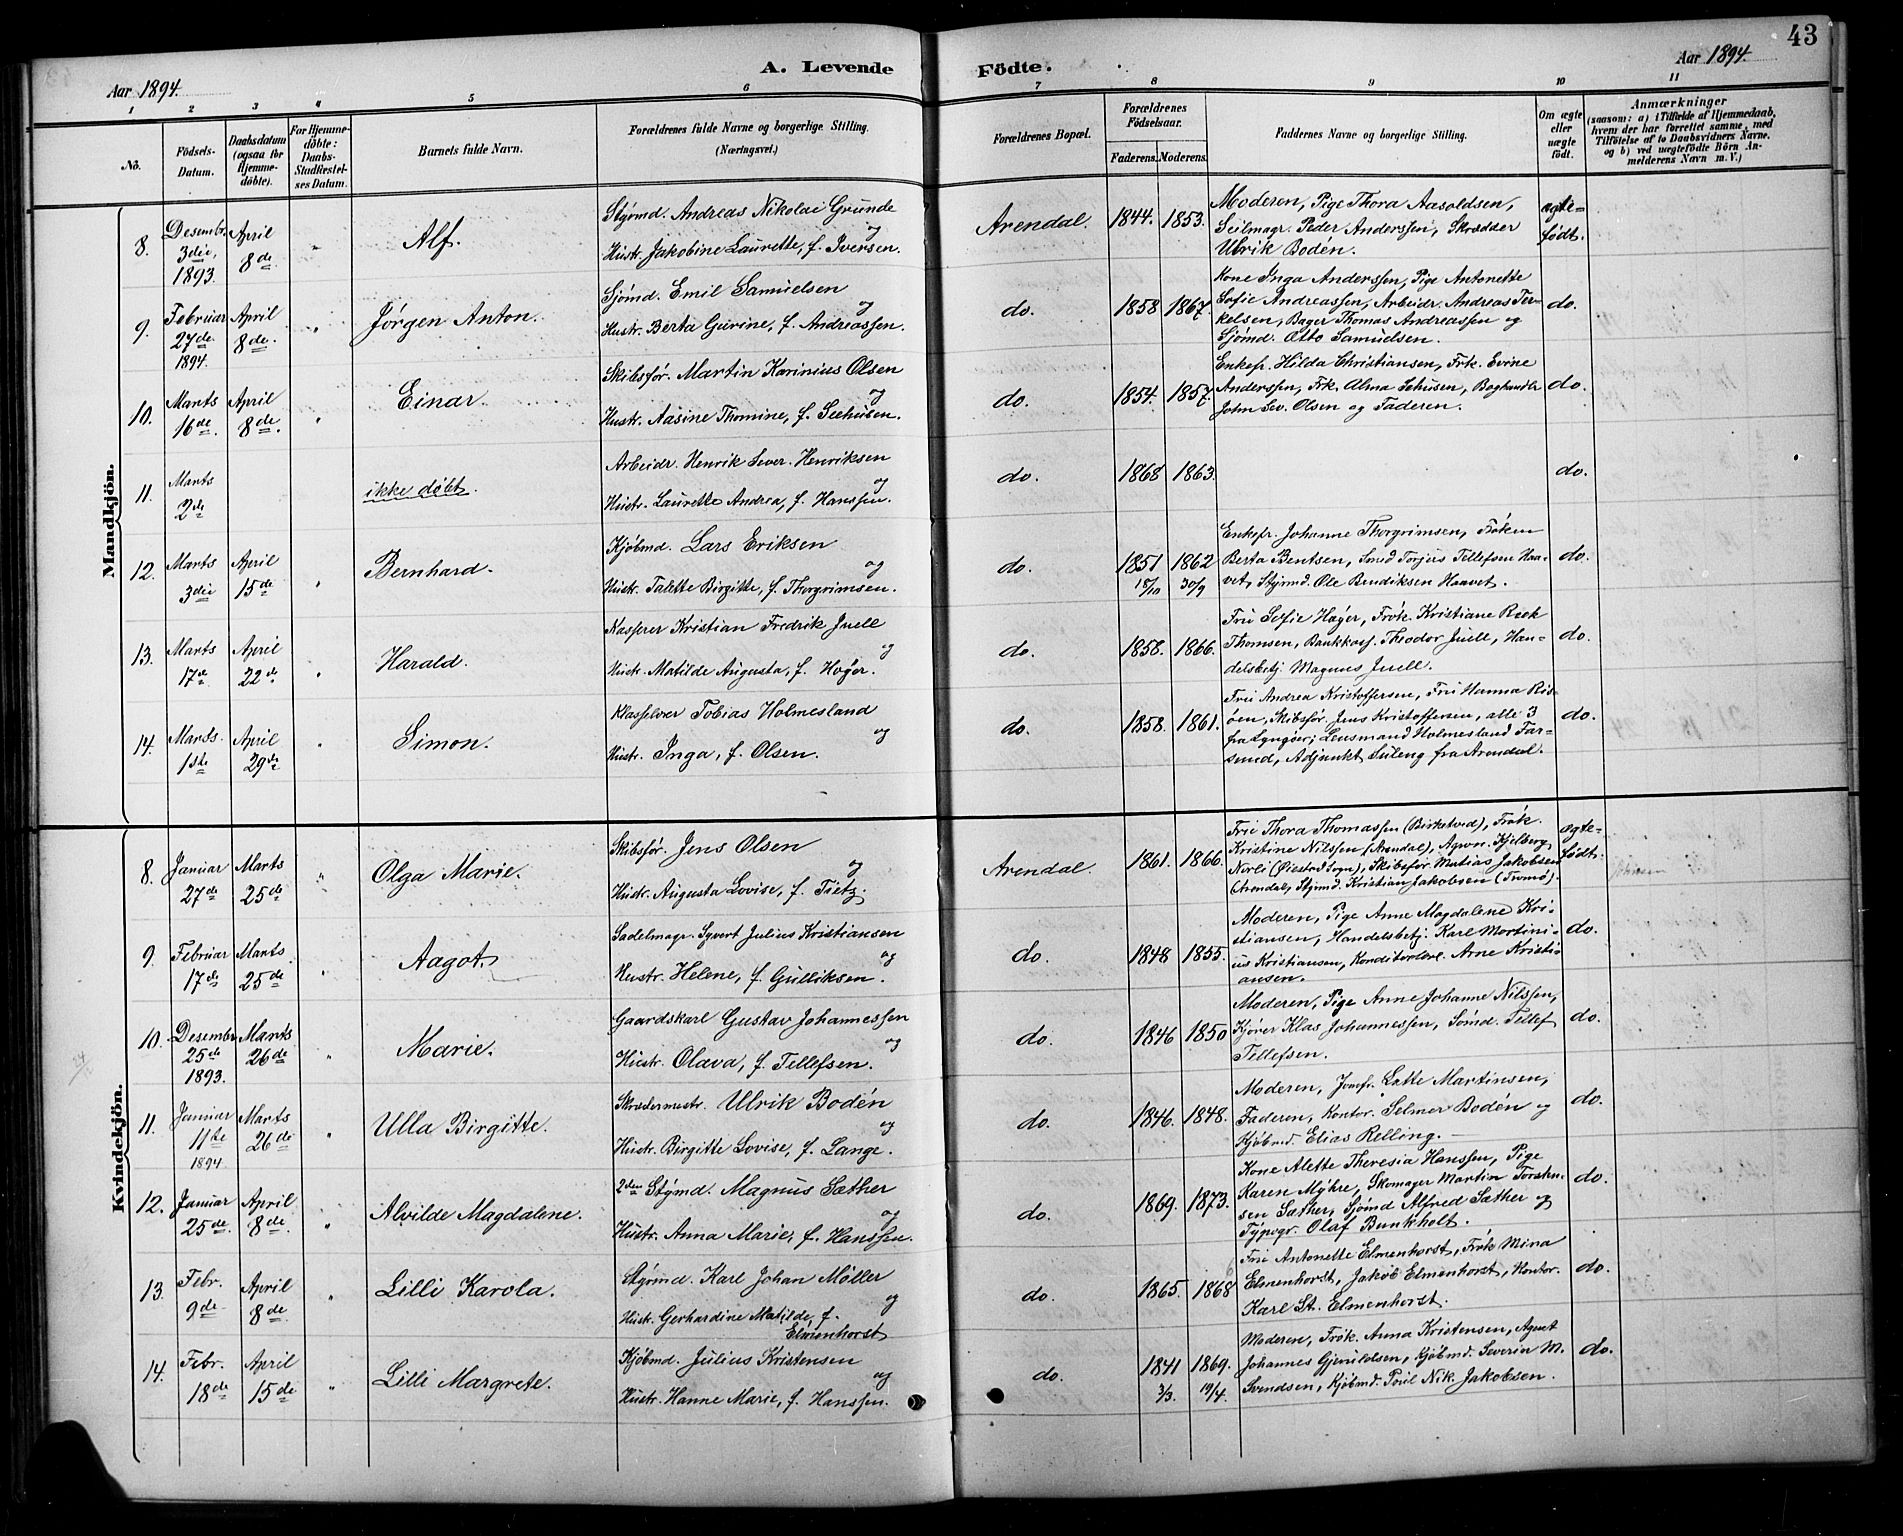 43
Aar 1894.
A. Levende Födte.
Aar 1894.
1 2 3 4 5 6 7 8 9 10 11
No.
Födsels-Datum.
Daabsdatum (ogsaa for Hjemmedöbte).
For Hjemmedöbte: Daabs-Stadfæstelses Datum.
Barnets fulde Navn.
Forældrenes fulde Navne og borgerlige Stilling. (Næringsvei.)
Forældrenes Bopæl.
Forældrenes Födselsaar.
Faderens. Moderens.
Faddernes Navne og borgerlige Stilling.
Om ægte eller uægte födt.
Anmærkninger
(saasom: a) i Tilfælde af Hjemmedaab, hvem der har forrettet samme, med Tilföielse af to Daabsvidners Navne, og b) ved uægtefödte Börn Anmelderens Navn m. V.)
Mandkjön.
8. Desembr. 3die, 1893 April 8de " Alf.
Styrmd. Andreas Nikolai Grunde og
Hustr. Jakobine Laurette, f. Iversen.
Arendal. 1844. 1853.
Moderen, Pige Thora Aasoldsen,
Seilmagr. Peder Anderssen, Skrædder
Ulrik Bodén.
ægte-født.
9. Februar 27de 1894. April 8de. " Jørgen Anton.
Sjømd. Emil Samuelsen og
Hustr. Berta Gurine, f. Andreassen.
do. 1858 1867.
Kone Inga Anderssen, Pige Antonette
Sofie Andreassen, Arbeidr. Andreas Ter-
kelsen, Bager Thomas Andreassen og
Sjømd. Otto Samuelsen.
do.
10. Marts 16de. April 8de. " Einar.
Skibsfør. Martin Karinius Olsen og
Hustr. Aasine Thomine, f. Seehusen.
do. 1854. 1857.
Enkefr. Hilda Christiansen, Frk. Evine
Anderssen, Frk. Alma Sehusen, Boghandlr
John Sev. Olsen og Faderen.
do.
11. Marts 2de ikke døbt.
Arbeidr. Henrik Sever. Henriksen og
Hustr. Laurette Andrea, f. Hanssen.
do. 1868 1863. do.
12. Marts 3die April 15de " Bernhard.
Kjøbmd. Lars Eriksen og
Hustr. Talette Birgitte, f. Thorgrimsen.
do. 1851 18/10 1862 30/9
Enkefr. Johanne Thorgrimsen, Frøken
Berta Bentsen, Smed Torjus Tellefsen Haa-
vet, Styrmd. Ole Bendiksen Haavet.
do.
13. Marts 17de April 22de " Harald.
Kasserer Kristian Fredrik Juell og
Hustr. Matilde Augusta, f. Høyer.
do. 1858. 1866.
Fru Sofie Høyer, Frøk. Kristiane Reek
Thomsen, Bankkass. Theodor Juell, Han-
delsbetj. Magnus Juell.
do.
14. Marts. 1ste April 29de " Simon.
Klasselær Tobias Holmesland og
Hustr. Inga, f. Olsen.
do. 1858. 1861.
Fru Andrea Kristoffersen, Fru Hanna Ris-
øen, Skibsfør. Jens Kristoffersen, alle 3
fra Lyngør; Lensmand Holmesland Far-
sund, Adjunkt Seileng fra Arendal.
do.
Kvindekjön.
8. Januar 27de Marts 25de " Olga Marie.
Skibsfør. Jens Olsen og
Hustr. Augusta Lovise, f. Tietz.
Arendal. 1861. 1866.
Fru Thora Thomassen (Birketved), Frøk.
Kristine Nilssen (Arendal), Agron. Kjelberg
Nerli (Øiestad Sogn), Skibsfør Matias Jakobsen
(Arendal, Styrmd. Kristian Jakobsen (Tromø).
ægte-født.
9. Februar 17de Marts 25de " Aagot.
Sadelmagr. Syvert Julius Kristiansen og
Hustr. Helene, f. Gulliksen.
do. 1848 1855.
Moderen, Pige Anne Magdalene Kri-
stiansen, Handelsbetj. Karl Martini-
us Kristiansen, Konditorlærl. Arne Kristi-
ansen.
do.
10. Desembr 25de 1893. Marts 26de " Marie.
Gaardskarl Gustav Johannessen og
Hustr. Olava, f. Tellefsen.
do. 1846 1850
Moderen, Pige Anne Johanne Nilssen,
Kjører Klas Johannessen, Sømd. Tellef
Tellefsen.
do.
11. Januar 11te 1894. Marts 26de " Ulla Birgitte.
Skrædermestr. Ulrik Bodén og
Hustr. Birgitte Lovise, f. Lange.
do. 1846. 1848.
Moderen, Jomfr. Latte Martinsen,
Faderen, Kontor. Selmer Bodén og
Kjøbmd. Elias Relling.
do.
12. Januar 25de. April 8de. " Alvilde Magdalene.
2den Stymd. Magnus Sæther og
Hustr. Anna Marie, f. Hanssen.
do. 1869. 1873.
Kone Alette Theresia Hanssen, Pige
Karen Myhre, Skomager Martin Torsten-
sen Sæther, Sjømd Alfred Sæther og
Typogr. Olaf Bunkholt.
do.
13. Febr. 9de April 8de " Lilli Karola.
Styrmd. Karl Johan Møller og
Hustr. Gerhardine Matilde, f.
Elmenhorst
do. 1865. 1868
Fru Antonette Elmenhorst, Frøk Mina
Elmenhorst, Jakob Elmenhorst, Kontor.
Karl St. Elmenhorst.
do.
14. Febr. 18de April 15de " Lilli Margrete.
Kjøbmd. Julius Kristensen og
Hustr. Hanne Marie, f. Hanssen.
do. 1841 3/3. 1869. 19/4.
Moderen, Frøk. Anna Kristensen, Agent
Johannes Gjeruldsen, Kjøbmd. Severin M.
Svendsen, Kjøbmd. Poul Nik. Jakobsen.
do.